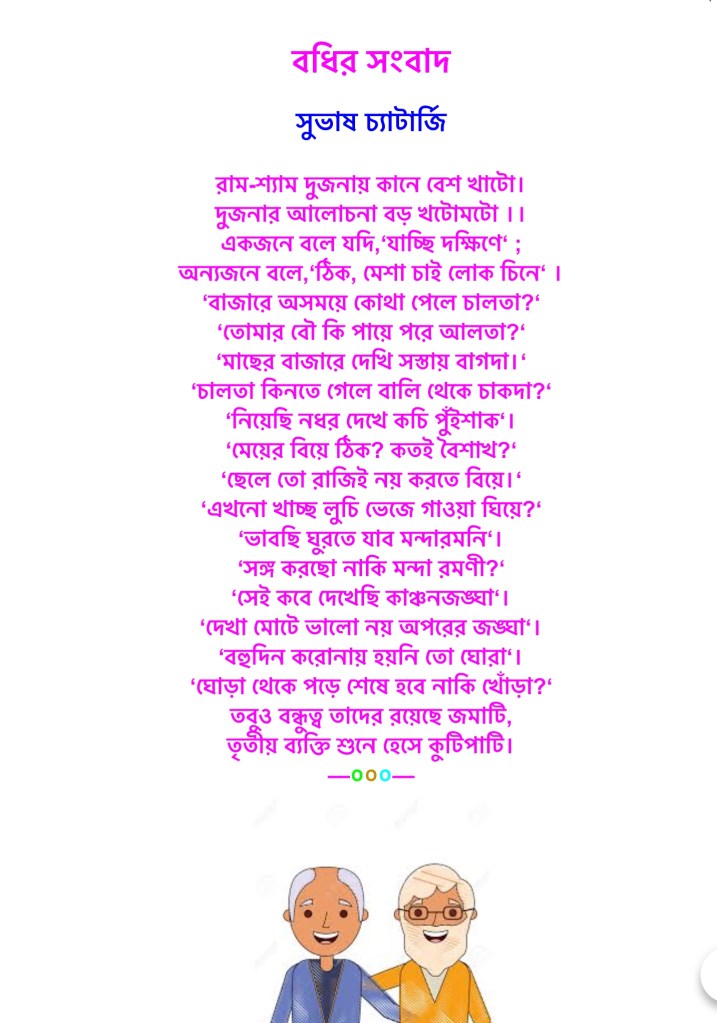 বধির সংবাদ
সুভাষ চ্যাটার্জি
রাম-শ্যাম দুজনায় কানে বেশ খাটো।
দুজনার আলোচনা বড় খটোমটো ।।
একজনে বলে যদি,‘যাচ্ছি দক্ষিণে‘ ;
অন্যজনে বলে,‘ঠিক, মেশা চাই লোক চিনে‘ ।
‘বাজারে অসময়ে কোথা পেলে চালতা?‘
‘তোমার বৌ কি পায়ে পরে আলতা?‘
‘মাছের বাজারে দেখি সস্তায় বাগদা।‘
‘চালতা কিনতে গেলে বালি থেকে চাকদা?‘
‘নিয়েছি নধর দেখে কচি পুঁইশাক‘।
‘মেয়ের বিয়ে ঠিক? কতই বৈশাখ?‘
‘ছেলে তো রাজিই নয় করতে বিয়ে।‘
‘এখনো খাচ্ছ লুচি ভেজে গাওয়া ঘিয়ে?‘
‘ভাবছি ঘুরতে যাব মন্দারমনি‘।
‘সঙ্গ করছো নাকি মন্দা রমণী?‘
‘সেই কবে দেখেছি কাঞ্চনজঙ্ঘা‘।
‘দেখা মোটে ভালো নয় অপরের জঙ্ঘা‘।
‘বহুদিন করোনায় হয়নি তো ঘোরা‘।
‘ঘোড়া থেকে পড়ে শেষে হবে নাকি খোঁড়া?‘
তবুও বন্ধুত্ব তাদের রয়েছে জমাটি,
তৃতীয় ব্যক্তি শুনে হেসে কুটিপাটি।
—০০০—